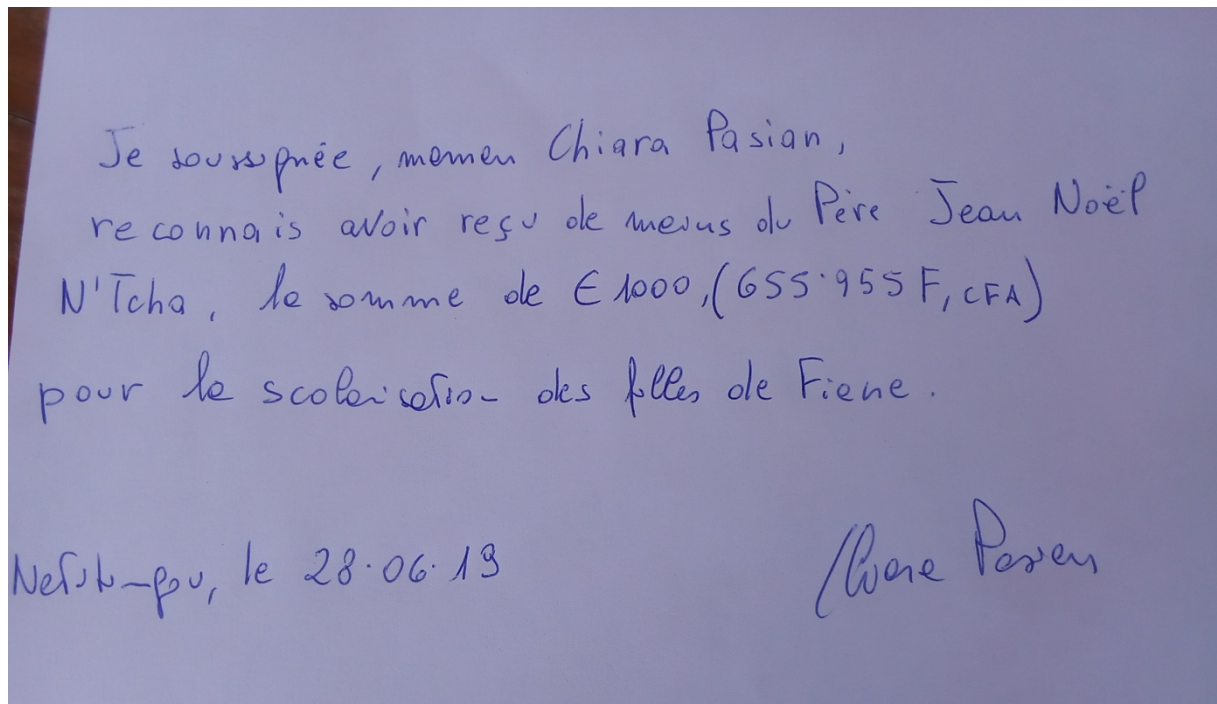 Je soussignée, maman Chiara Pasian,
reconnais avoir reçu de mains du Père Jean Noël
N'Tcha, la somme de € 1000,(655.955 F, CFA)
pour la scolarisation des filles de
le 28.06.19